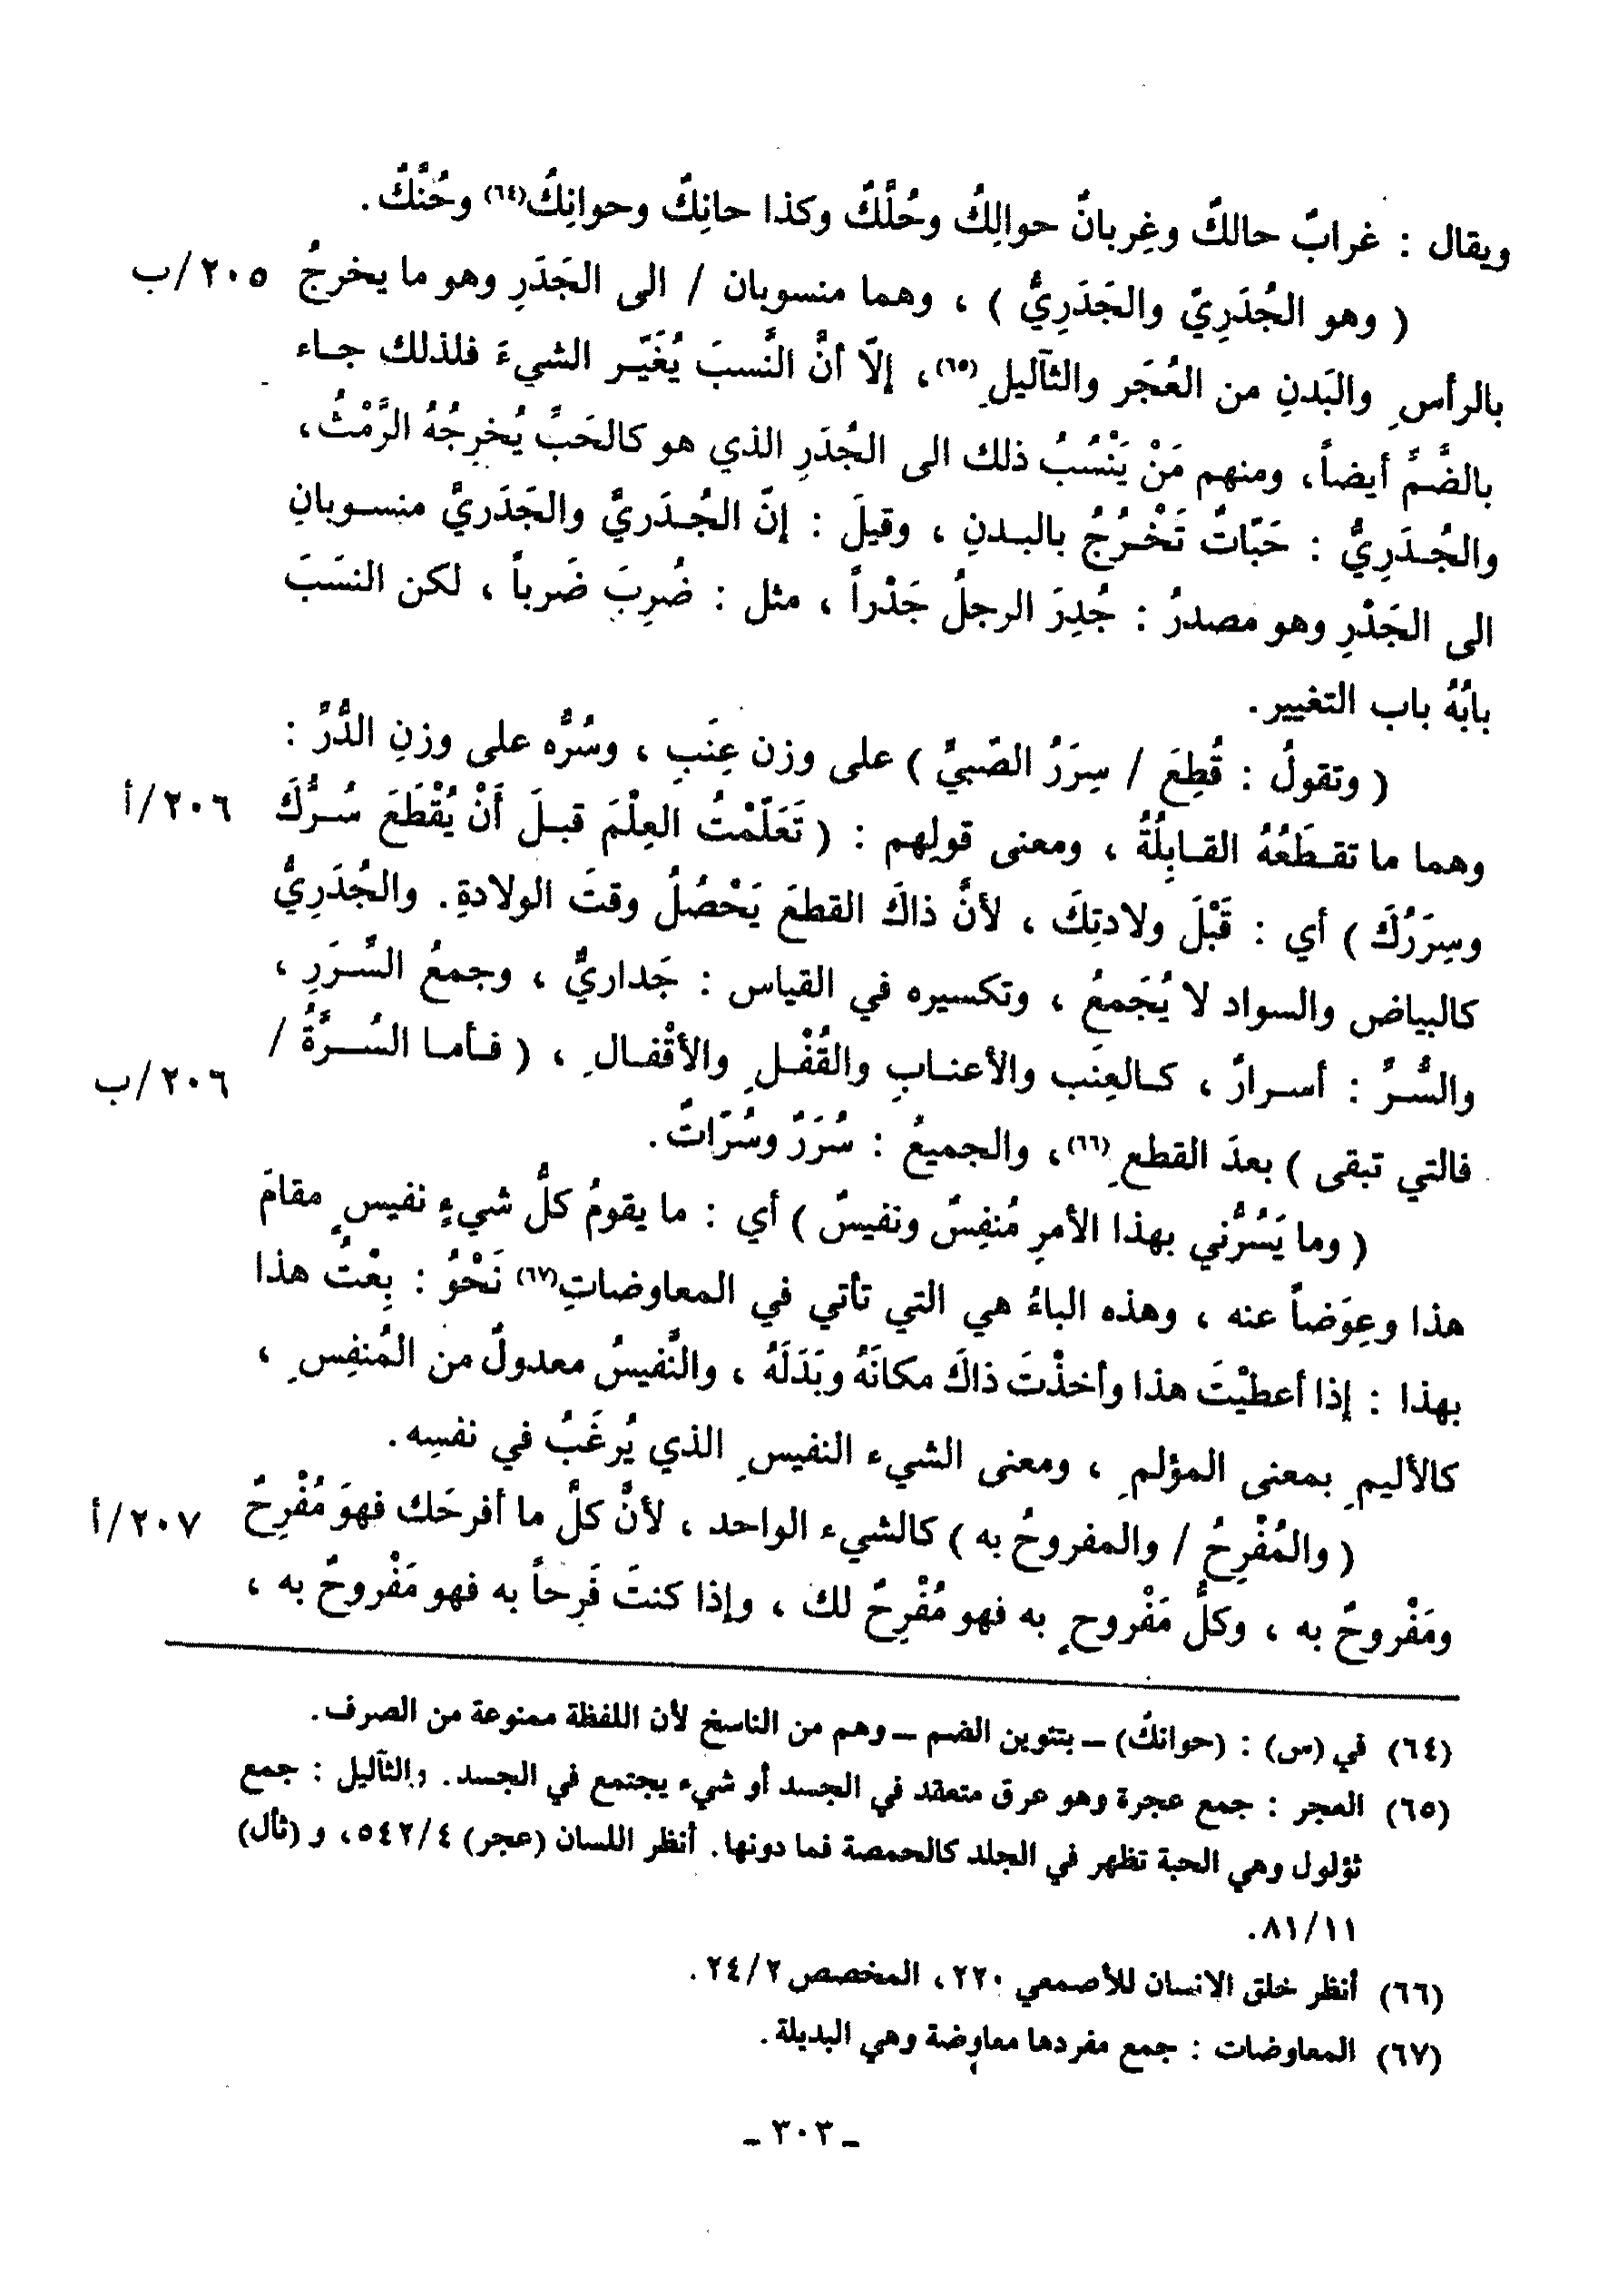 ويقال : غرابٌ حالكٌ وغِربانٌ حوالِكُ وحُلَّكٌ وكذا حانِكٌ وحوانِكُ(٦٤) وحُنَّكٌ .
( وهو الجُدَرِيّ والجَدَرِيُّ ) ، وهما منسوبان / الى الجَدَرِ وهو ما يخرجُ ٢٠٥/ب
بالرأسِ والبَدنِ من العُجَر والثآليلِ(٦٥)، إلّا أنَّ النَّسبَ يُغَيّـر الشيءَ فلذلك جـاء
بالضَّمِّ أيضاً، ومنهم مَنْ يَنْسُبُ ذلك الى الجُدَرِ الذي هو كالحَبِّ يُخرِجُهُ الرَّمْثُ،
والجُـدَرِيُّ : حَبّاتٌ تَخْـرُجُ بالبـدنِ ، وقيلَ : إنَّ الجُـدَريَّ والجَدَريَّ منسـوبانِ
الى الجَدْرِ وهو مصدرُ : جُدِرَ الرجلُ جَدْراً ، مثل : ضُرِبَ ضَرباً ، لكن النسَبَ
بابُهُ باب التغيير.
( وتقولُ : قُطِعَ / سِرَرُ الصَّبيِّ ) على وزن عِنَبِ ، وسُرُّه على وزنِ الدُّرِّ :
وهما ما تقـطَعُهُ القـابِلُةُ ، ومعنى قولِهم : ( تَعَلَّمْتُ العِلْمَ قبـلَ أَنْ يُقْطَعَ سُـرُّكَ ٢٠٦/أ
وسِرَرُكَ ) أي : قَبْلَ ولادتِكَ ، لأنَّ ذاكَ القطعَ يَحْصُلُ وقتَ الولادةِ. والجُدَرِيُّ
كالبياض والسواد لا يُجَمعُ ، وتكسيره في القياس : جَداريُّ ، وجمعُ السِّرَرِ ،
والسُّـرِّ : أسـرارٌ ، كـالعِنَب والأعنـابِ والقُفْـلِ والأقْفـالِ ، ( فـأمـا السُـرَّةُ /
فالتي تبقى ) بعدَ القطعِ(٦٦)، والجميعُ : سُرَرٌ وسُرّاتٌ. ٢٠٦/ب
( وما يَسُرُّني بهذا الأمرِ مُنفِسٌ ونفيسٌ ) أي : ما يقومُ كلُّ شيءٍ نفيسٍ مقامَ
هذا وعِوَضاً عنه ، وهذه الباءُ هي التي تأتي في المعاوضاتِ(٦٧) نَحْوُ : بِعْتُ هذا
بهذا : إذا أعطيْتَ هذا وأخذْتَ ذاكَ مكانَهُ وبَدَلَهُ ، والنَّفيسُ معدولٌ من المُنفِسِ ،
كالأليمِ بمعنى المؤلمِ ، ومعنى الشيء النفيسِ الذي يُرغَبُ في نفسِه .
( والمُفْرِحُ / والمفروحُ به ) كالشيء الواحد ، لأنَّ كلَّ ما أفرحَك فهوَ مُفْرِحٌ ٢٠٧/أ
ومَفْروحٌ به ، وكلُّ مَفْروحٍ به فهو مُفْرِحٌ لك ، وإذا كنتَ فَرِحاً به فهو مَفْروحٌ به ،
(٦٤) في (س) : (حوانكٌ) ــ بتنوين الضم ــ وهم من الناسخ لأن اللفظة ممنوعة من الصرف.
(٦٥) العجر : جمع عجرة وهو عرق متعقد في الجسد أو شيء يجتمع في الجسد. والثآليل : جمع
ثؤلول وهي الحبة تظهر في الجلد كالحمصة فما دونها. أنظر اللسان (عجر) ٥٤٢/٤، و (ثأل)
٨١/١١.
(٦٦) أنظر خلق الانسان للأصمعي ٢٢٠، المخصص ٢٤/٢.
(٦٧) المعاوضات : جمع مفردها معاوضة وهي البديلة.
ـ ٣٠٣ ـ